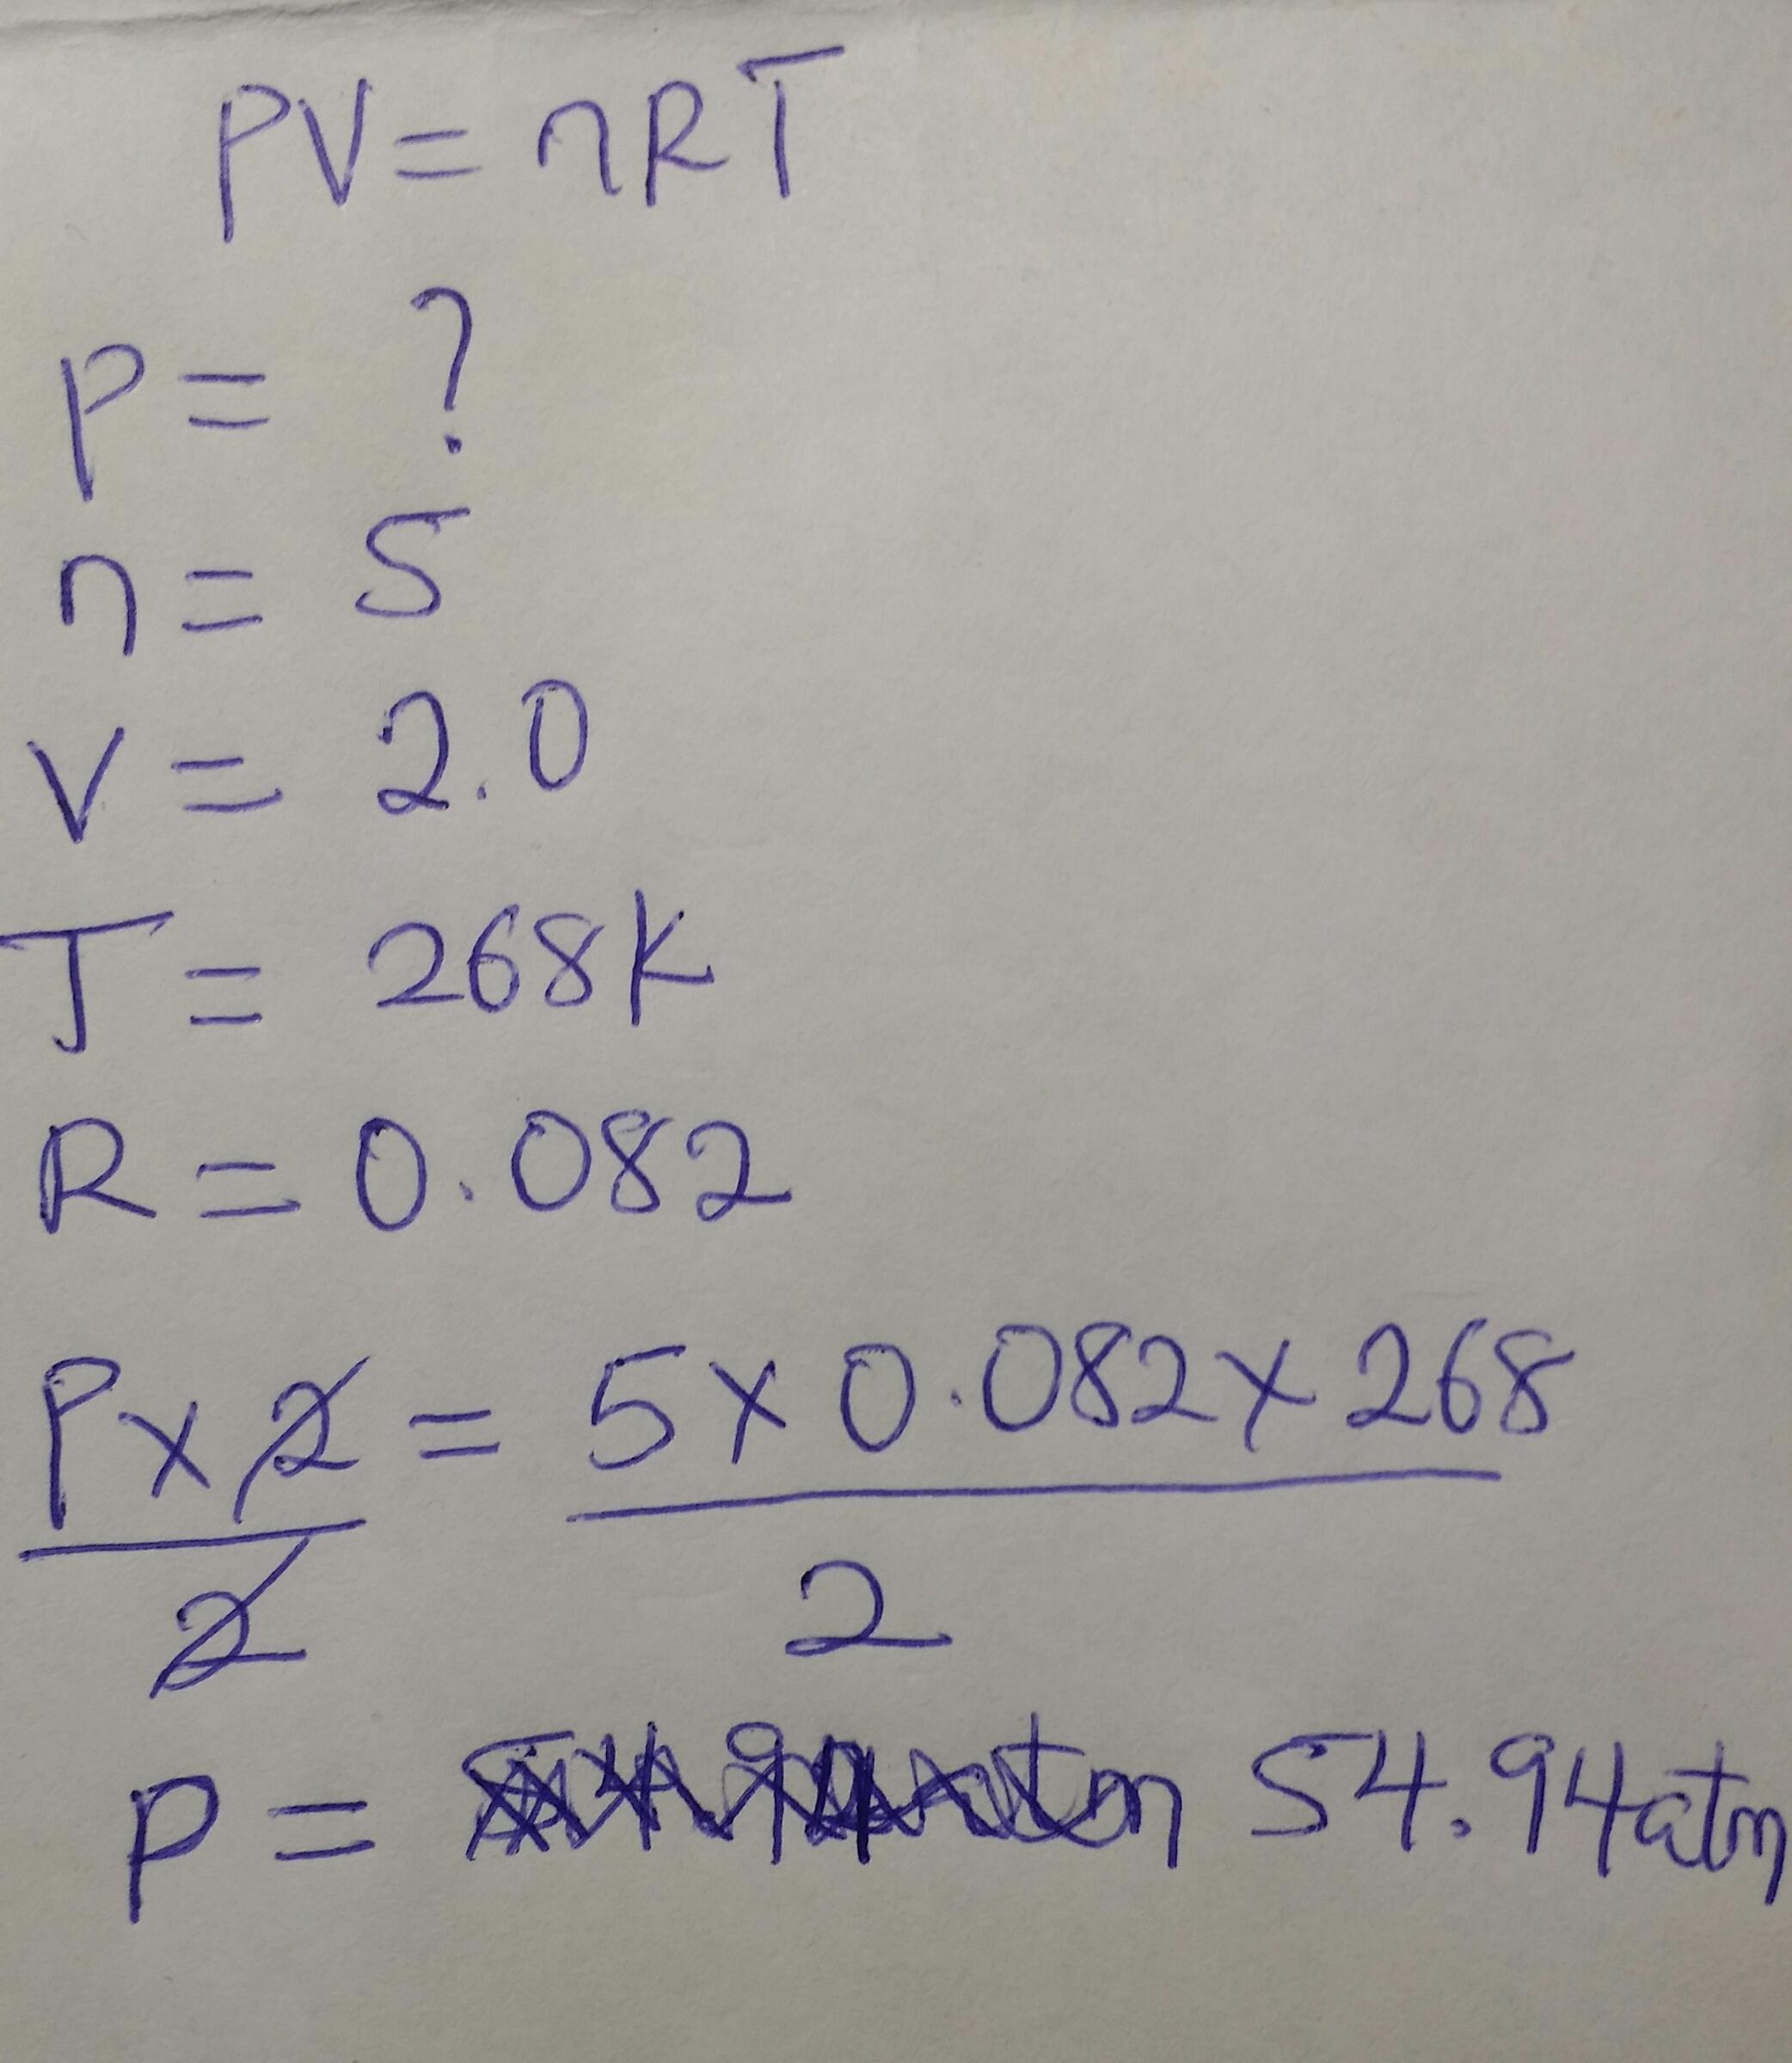 PV = nRT
P = ?
n = 5
V = 2.0
T = 268K
R = 0.082
P x 2 = 5 x 0.082 x 268
2 2
P = 54.94atm